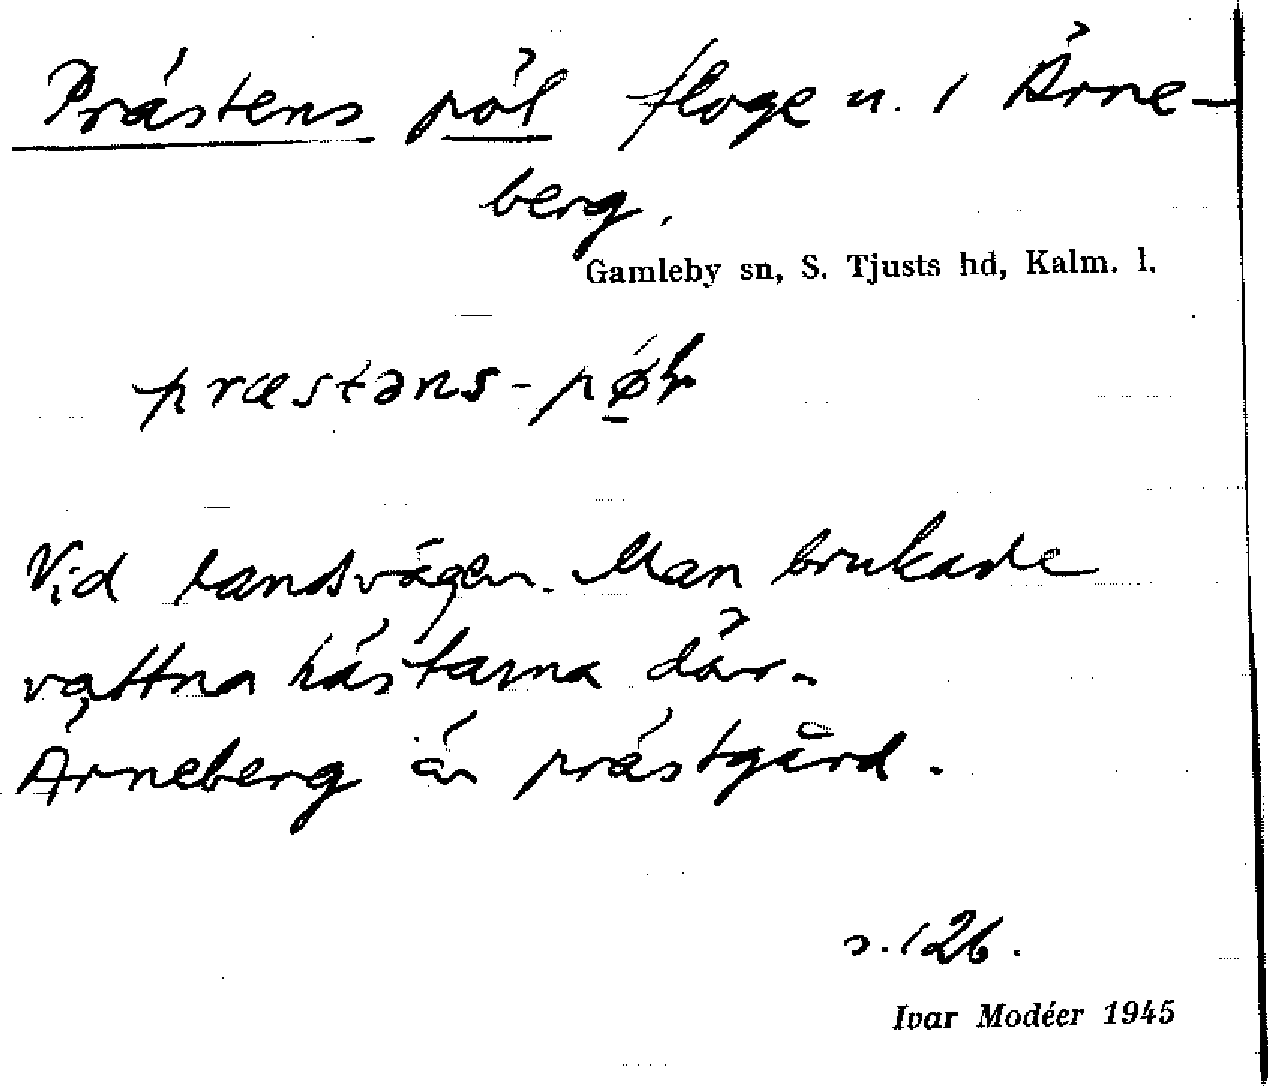 Prästens pöl floge u. i Ärne-
berg.
Gamleby sn, S. Tjusts hd, Kalm. l.
præstəns-pø̱l
Vid landsvägen. Man brukade
vattna hästarna där.
Ärneberg är prästgård.
s. 126.
Ivar Modéer 1945